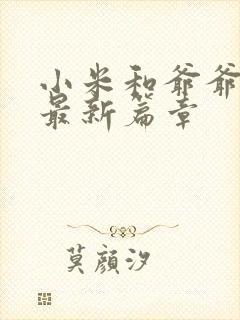 小米和爷爷
最新篇章
莫顔汐